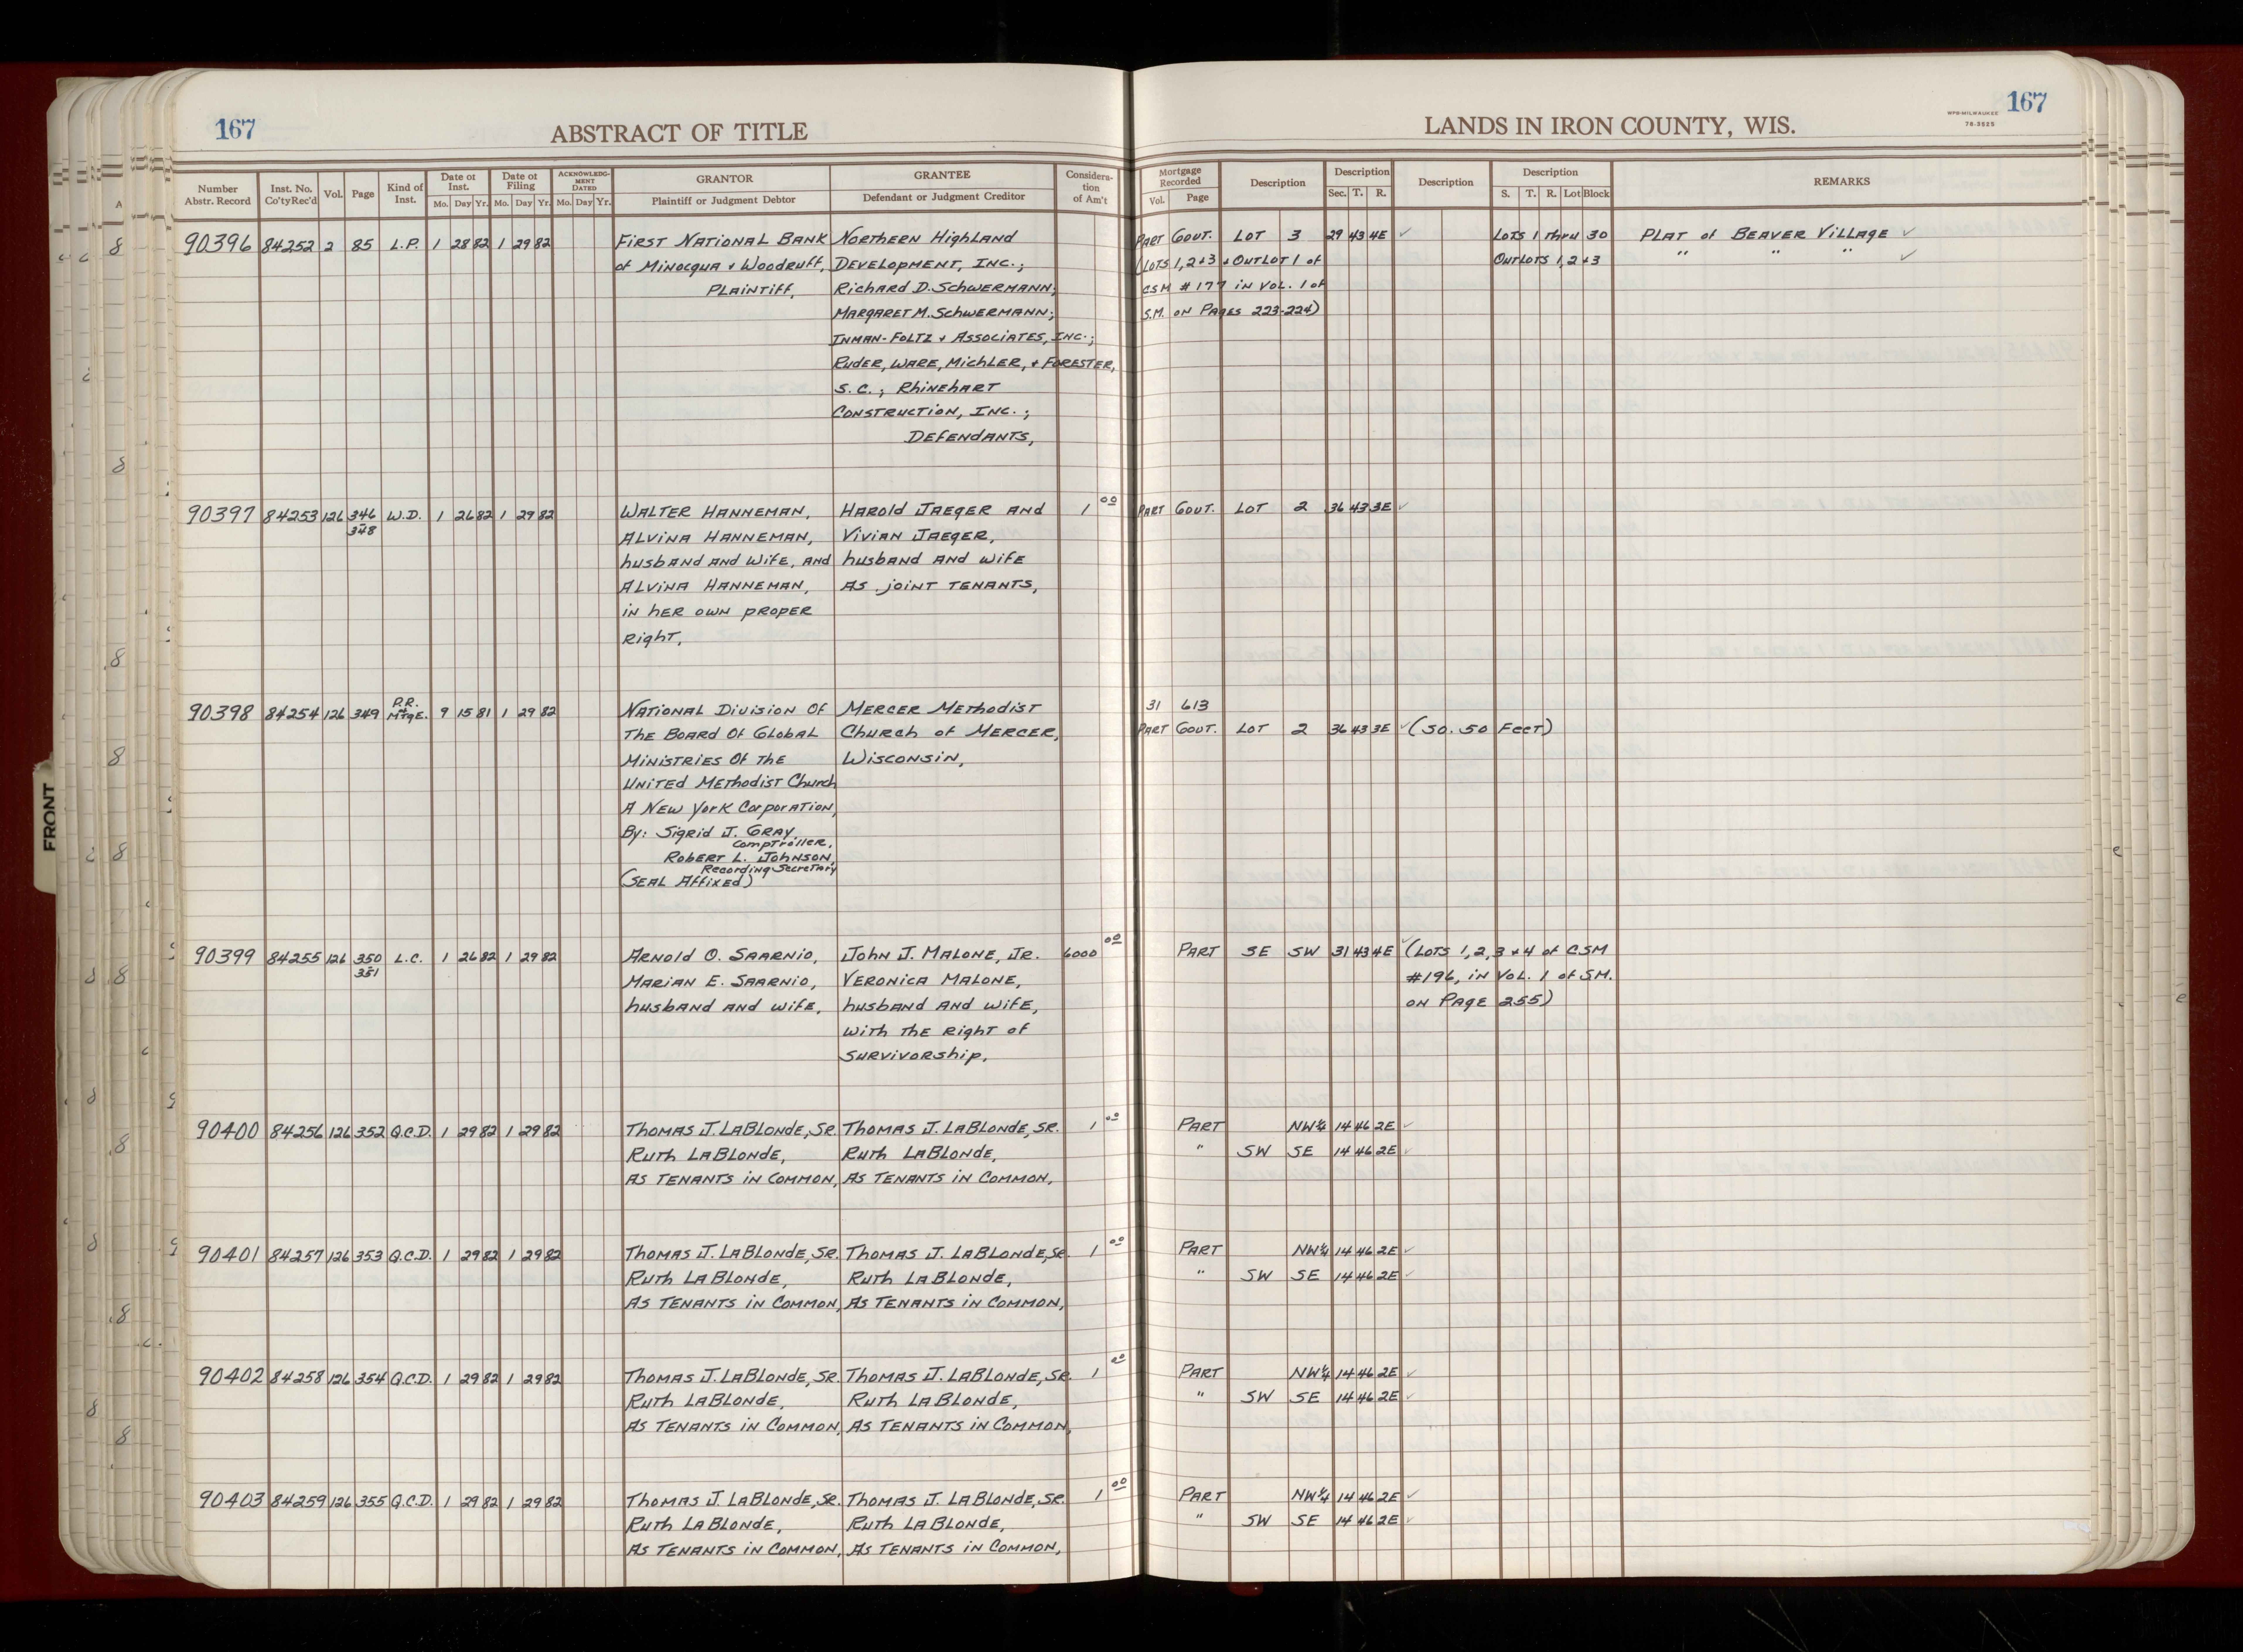 167
ABSTRACT OF TITLE
Number Abstr. Record
Inst. No. Co'ty Rec'd
Vol.
Page
Kind of Inst.
Date of Inst. Mo. Day Yr.
Date of Filing Mo. Day Yr.
ACKNOWLEDGMENT DATED Mo. Day Yr.
GRANTOR Plaintiff or Judgment Debtor
GRANTEE Defendant or Judgment Creditor
Consideration of Am't
LANDS IN IRON COUNTY, WIS.
WPB-MILWAUKEE
78-3525
167
Mortgage Recorded Vol. Page
Description
Description Sec. T. R.
Description
Description S. T. R. Lot Block
REMARKS
90396 84252 2 85 L.P. 1 28 82 1 29 82 First National Bank Northern Highland Part Gout. Lot 3 29 43 4E ✓ Lots 1 thru 30 Plat of Beaver Village ✓
of Minocqua + Woodruff, Development, Inc.; (Lots 1, 2+3 + Outlot 1 of Outlots 1, 2+3 " " " ✓
Plaintiff, Richard D. Schwermann; CSM #177 in Vol. 1 of
Margaret M. Schwermann; S.M. on Pages 223-224)
Inman-Foltz + Associates, Inc.;
Ruder, Ware, Michler, + Forester,
S.C.; Rhinehart
Construction, Inc.;
Defendants,
90397 84253 126 346 W.D. 1 26 82 1 29 82 Walter Hanneman, Harold Jaeger and 1 00 Part Gout. Lot 2 36 43 3E ✓
348 Alvina Hanneman, Vivian Jaeger,
husband and wife, and husband and wife
Alvina Hanneman, as joint tenants,
in her own proper
right,
90398 84254 126 349 P.R. of Mtge. 9 15 81 1 29 82 National Division Of Mercer Methodist 31 613
The Board Of Global Church of Mercer, Part Gout. Lot 2 36 43 3E ✓ (So. 50 Feet)
Ministries Of The Wisconsin,
United Methodist Church
A New York Corporation,
By: Sigrid J. Gray,
Comptroller,
Robert L. Johnson,
Recording Secretary
(Seal Affixed)
90399 84255 126 350 L.C. 1 26 82 1 29 82 Arnold O. Saarnio, John J. Malone, Jr. 6000 00 Part SE SW 31 43 4E ✓ (Lots 1, 2, 3 + 4 of CSM
351 Marian E. Saarnio, Veronica Malone, #196, in Vol. 1 of S.M.
husband and wife, husband and wife, on Page 255)
with the right of
survivorship,
90400 84256 126 352 Q.C.D. 1 29 82 1 29 82 Thomas J. LaBlonde, Sr. Thomas J. LaBlonde, Sr. 1 00 Part NW¼ 14 46 2E ✓
Ruth LaBlonde, Ruth LaBlonde, " SW SE 14 46 2E ✓
As Tenants in Common, As Tenants in Common,
90401 84257 126 353 Q.C.D. 1 29 82 1 29 82 Thomas J. LaBlonde, Sr. Thomas J. LaBlonde, Sr. 1 00 Part NW¼ 14 46 2E ✓
Ruth LaBlonde, Ruth LaBlonde, " SW SE 14 46 2E ✓
As Tenants in Common, As Tenants in Common,
90402 84258 126 354 Q.C.D. 1 29 82 1 29 82 Thomas J. LaBlonde, Sr. Thomas J. LaBlonde, Sr. 1 00 Part NW¼ 14 46 2E ✓
Ruth LaBlonde, Ruth LaBlonde, " SW SE 14 46 2E ✓
As Tenants in Common, As Tenants in Common,
90403 84259 126 355 Q.C.D. 1 29 82 1 29 82 Thomas J. LaBlonde, Sr. Thomas J. LaBlonde, Sr. 1 00 Part NW¼ 14 46 2E ✓
Ruth LaBlonde, Ruth LaBlonde, " SW SE 14 46 2E ✓
As Tenants in Common, As Tenants in Common,
FRONT